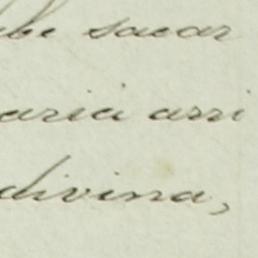 be sacar
aria arri
divina,